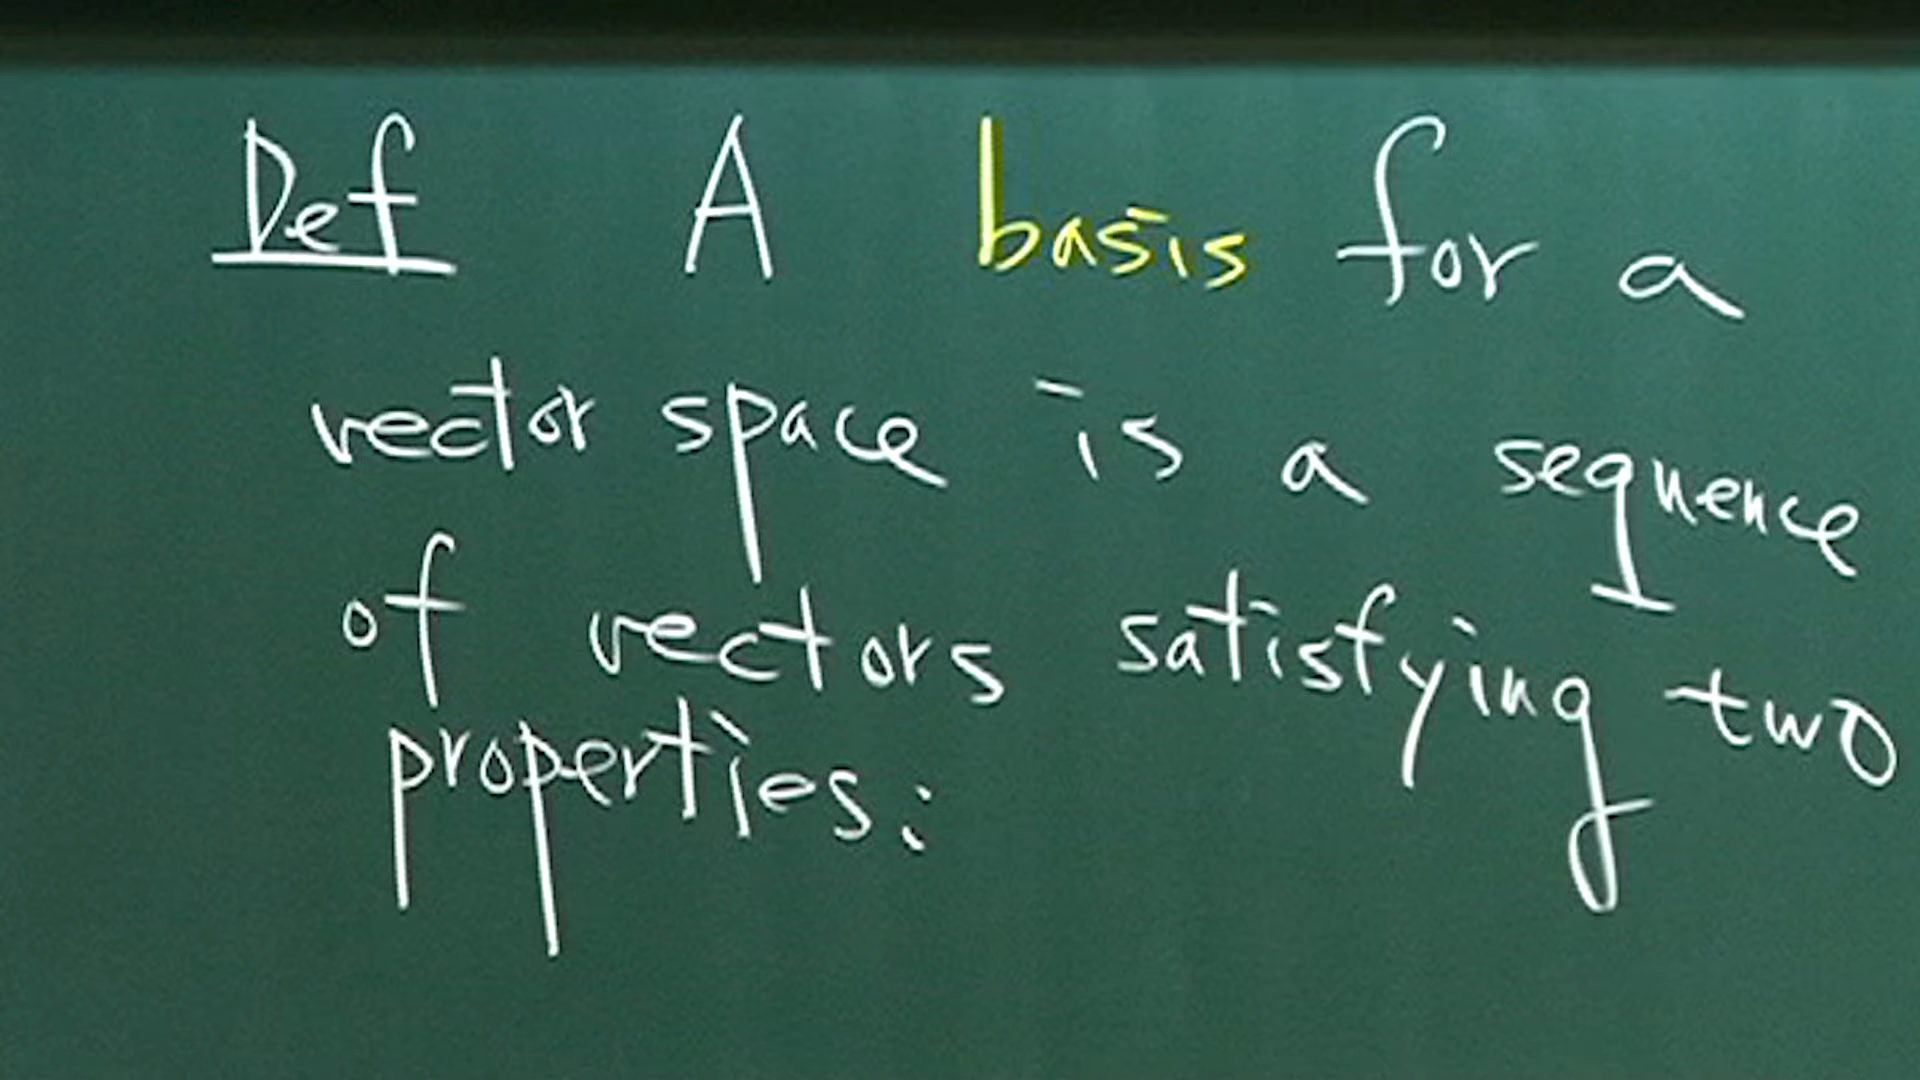 Def A basis for a
vector space is a sequence
of vectors satisfying two
properties: